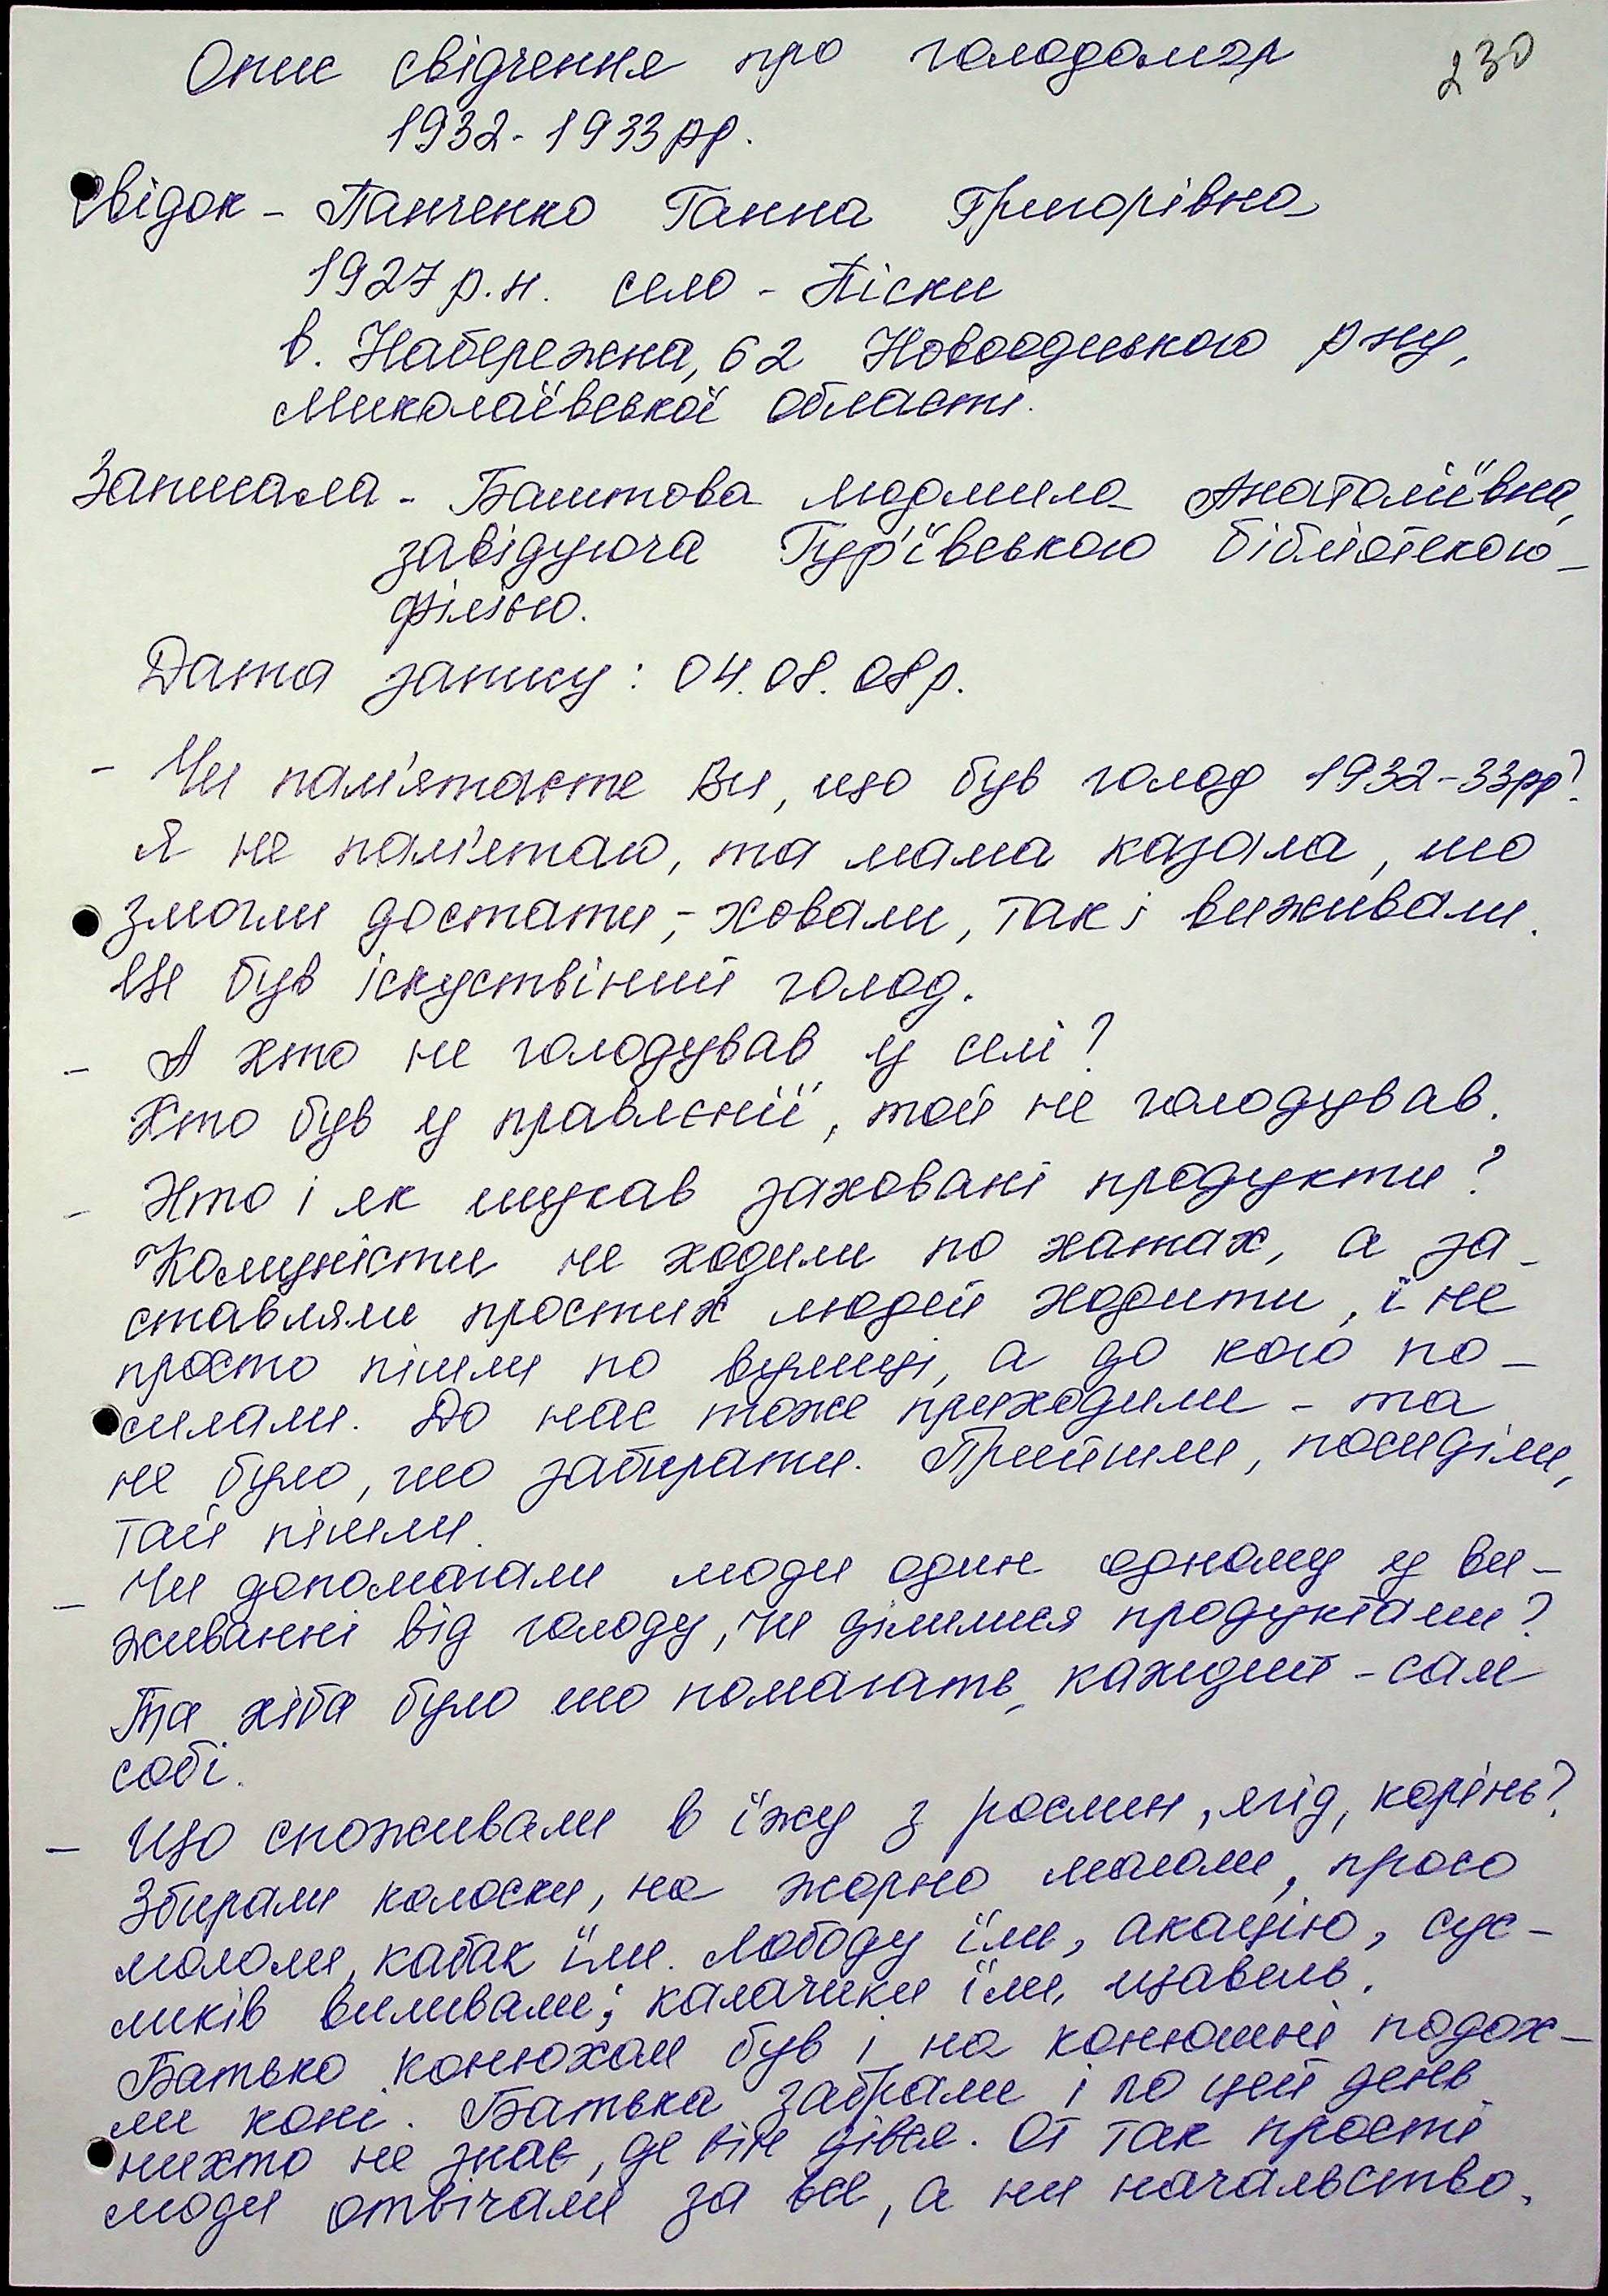 Опис свідчення про голодомор
230
1932-1933 рр.
Свідок - Панченко Ганна Григорівна
1927 р.н. село - Піски
в. Набережна, 62 Новоодеського р-ну,
Миколаївської області.
Записала - Баштова Людмила Анатоліївна,
завідуюча Гур'ївською бібліотекою-
філією.
Дата запису: 04.08.08р.
- Чи пам'ятаєте Ви, що був голод 1932-33рр?
Я не пам'ятаю, та мама казала, шо
змогли достати, - ховали, так і виживали.
Це був іскуствіний голод.
- А хто не голодував у селі?
Хто був у правлєнії, той не голодував.
- Хто і як шукав заховані продукти?
Комуністи не ходили по хатах, а за-
ставляли простих людей ходити, і не
просто пішли по вулиці, а до кого по-
силали. До нас тоже приходили - та
не було, шо забирати. Прийшли, посиділи,
тай пішли.
- Чи допомагали люди один одному у ви-
живанні від голоду, чи ділилися продуктами?
Та хіба було шо помагать, каждий - сам
собі.
- Що споживали в їжу з рослин, ягід, корінь?
Збирали колоски, на жорно мололи, просо
мололи, кабак їли. Лободу їли, акацію, сус-
ликів виливали; калачики їли, щавель.
Батько конюхом був і на конюшні подох-
ли коні. Батька забрали і по цей день
нихто не знає, де він дівся. От так прості
люди отвічали за все, а ни начальство.